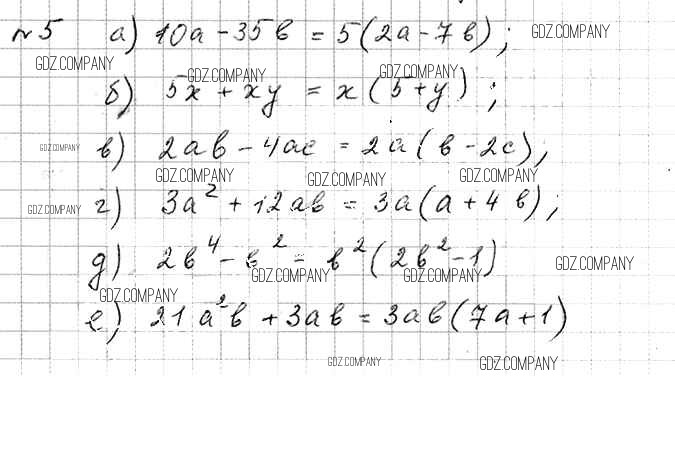 №5 а) 10a - 35b = 5(2a - 7b);
GDZ.COMPANY
GDZ.COMPANY
GDZ.COMPANY
GDZ.COMPANY
б) 5x + xy = x(5 + y);
GDZ.COMPANY
в) 2ab - 4ac = 2a(b - 2c);
GDZ.COMPANY
GDZ.COMPANY
GDZ.COMPANY
GDZ.COMPANY
г) 3a² + 12ab = 3a(a + 4b);
д) 2b⁴ - b² = b²(2b² - 1)
GDZ.COMPANY
GDZ.COMPANY
GDZ.COMPANY
GDZ.COMPANY
е) 21a²b + 3ab = 3ab(7a + 1)
GDZ.COMPANY
GDZ.COMPANY